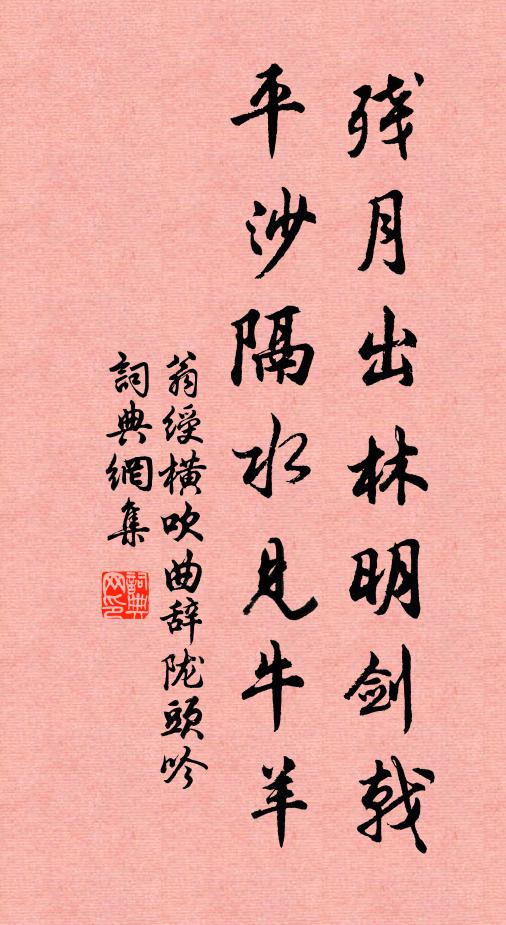 残月出林明剑戟
平沙隔水见牛羊
翁綬横吹曲辞陇頭吟
詞典網集
詞典网印